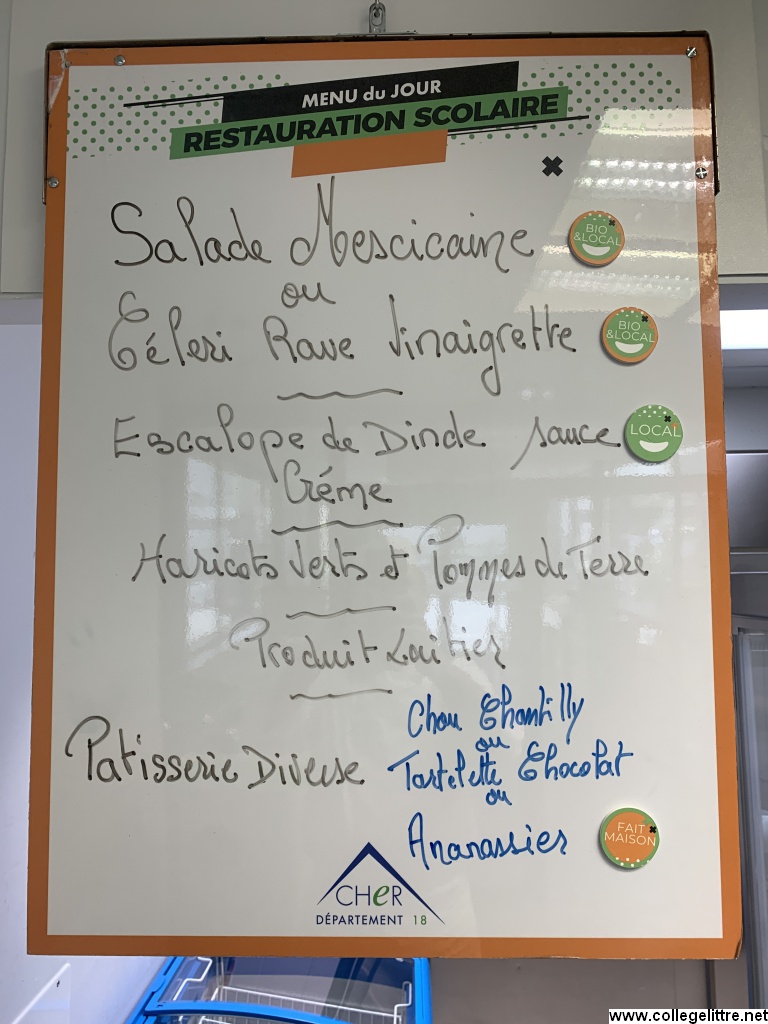 MENU du JOUR
RESTAURATION SCOLAIRE
Salade Mescicaine
BIO
&LOCAL
ou
Céleri Rave Vinaigrette
BIO
&LOCAL
Escalope de Dinde sauce
LOCAL
Créme
Haricots Verts et Pommes de Terre
Produit Laitier
Patisserie Diverse
Chou Chantilly
ou
Tartelette Chocolat
ou
Ananassier
FAIT
MAISON
CHeR
DÉPARTEMENT 18
www.collegelittre.net